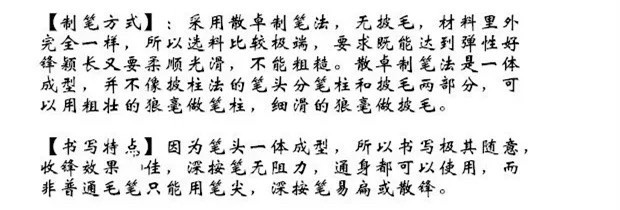 【制笔方式】：采用散卓制笔法，无披毛，材料里外
完全一样，所以选料比较极端，要求既能达到弹性好
锋颖长又要柔顺光滑，不能粗糙。散卓制笔法是一体
成型，并不像披柱法的笔头分笔柱和披毛两部分，可
以用粗壮的狼毫做笔柱，细滑的狼毫做披毛。
【书写特点】因为笔头一体成型，所以书写极其随意，
收锋效果 佳，深按笔无阻力，通身都可以使用，而
非普通毛笔只能用笔尖，深按笔易扁或散锋。